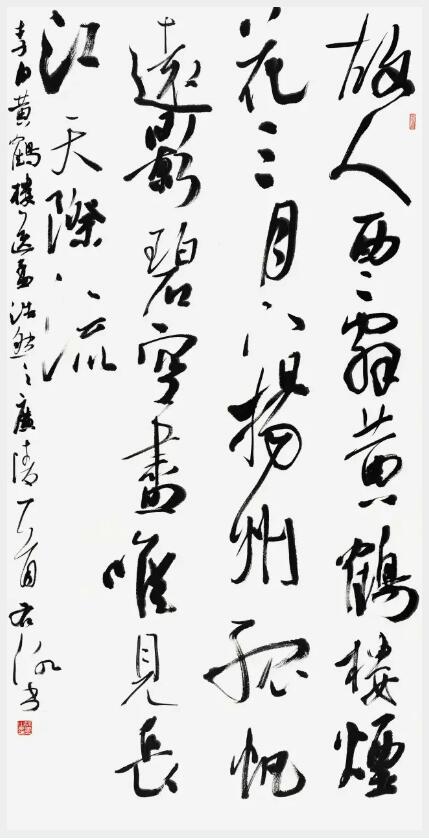 故人西辭黄鶴楼煙
花三月下揚州孤帆
遠影碧空盡唯見長
江天際流
李白黄鶴楼送孟浩然之廣陵一首
书